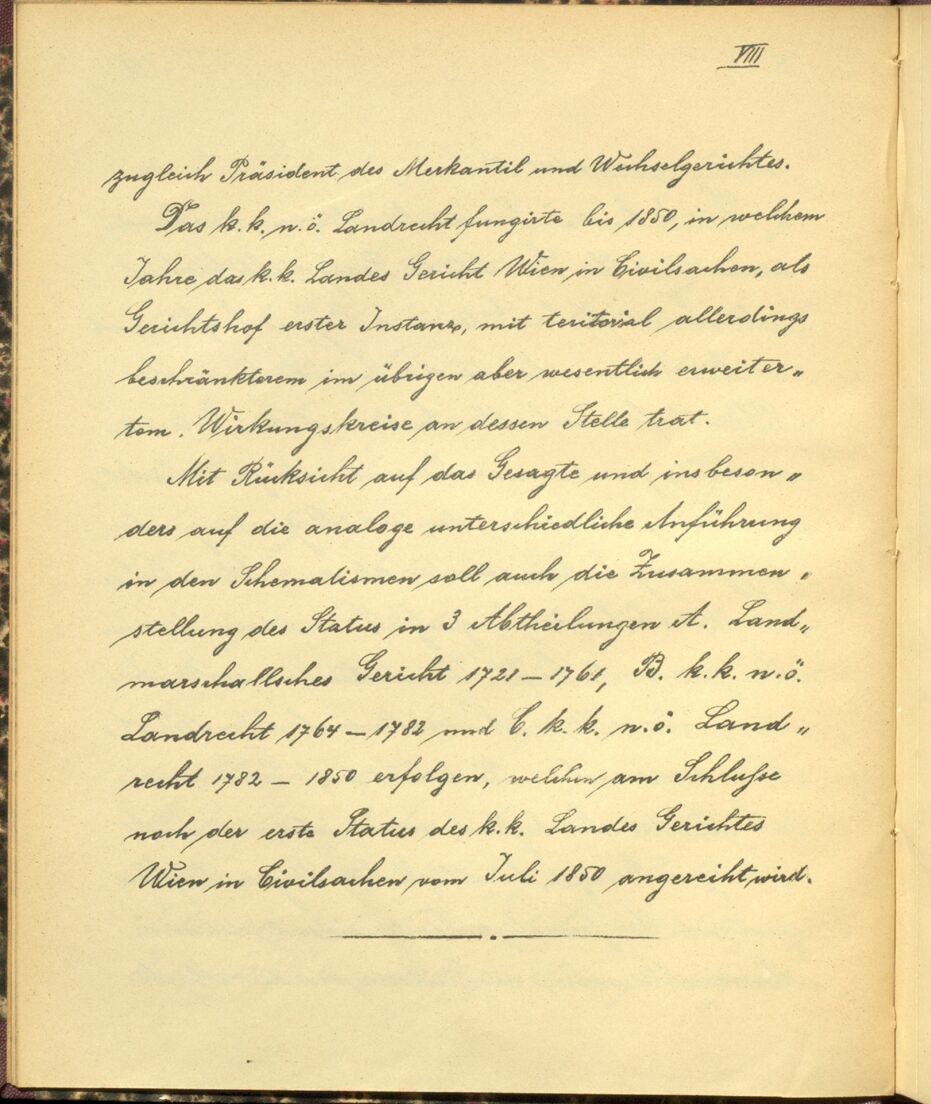 VIII
zugleich Präsident des Merkantil und Wechselgerichtes.
Das k.k. n.ö. Landrecht fungirte bis 1850, in welchem
Jahre das k.k. Landes Gericht Wien in Civilsachen, als
Gerichtshof erster Instanz, mit teritorial allerdings
beschränkterem im übrigen aber wesentlich erweiter„
tem. Wirkungskreise an dessen Stelle trat.
Mit Rücksicht auf das Gesagte und insbeson„
ders auf die analoge unterschiedliche Anführung
in den Schematismen soll auch die Zusammen„
stellung des Status in 3 Abtheilungen A. Land„
marschallsches Gericht 1721 – 1761, B. k.k. n.ö.
Landrecht 1764 – 1782 und C. k.k. n.ö. Land„
recht 1782 – 1850 erfolgen, welchen am Schluße
noch der erste Status des k.k. Landes Gerichtes
Wien in Civilsachen vom Juli 1850 angereiht wird.